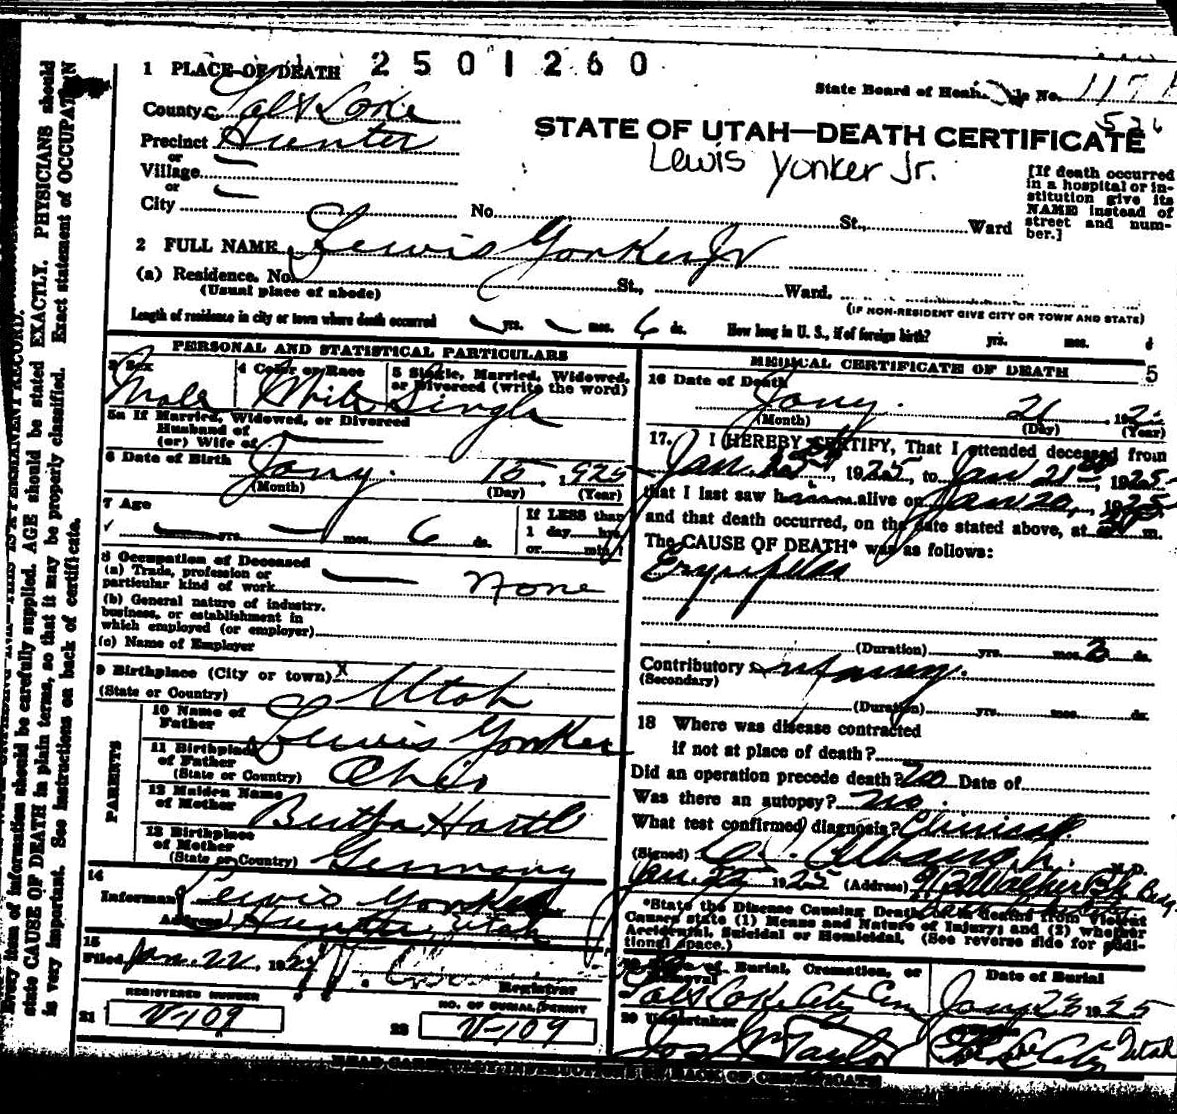 1 PLACE OF DEATH 2501260
State Board of Health File No. 117
County Salt Lake
526
Precinct Hunter
STATE OF UTAH—DEATH CERTIFICATE
or
Lewis Yonker Jr.
Village
or
City No. St., Ward
[If death occurred
in a hospital or in-
stitution give its
NAME instead of
street and num-
ber.]
2 FULL NAME Lewis Yonker Jr
(a) Residence. No. St., Ward.
(Usual place of abode)
(IF NON-RESIDENT GIVE CITY OR TOWN AND STATE)
Length of residence in city or town where death occurred yrs. mos. 6 ds. How long in U. S., if of foreign birth? yrs. mos. d
PERSONAL AND STATISTICAL PARTICULARS
3 Sex
Male
4 Color or Race
White
5 Single, Married, Widowed,
or Divorced (write the word)
Single
5a If Married, Widowed, or Divorced
Husband of
(or) Wife of
6 Date of Birth Jany. 15, 1925
(Month) (Day) (Year)
7 Age
yrs. mos. 6 ds.
If LESS than
1 day hrs
or min
8 Occupation of Deceased
(a) Trade, profession or
particular kind of work None
(b) General nature of industry,
business, or establishment in
which employed (or employer)
(c) Name of Employer
9 Birthplace (City or town) x
(State or Country) Utah
PARENTS
10 Name of
Father Lewis Yonker
11 Birthplace
of Father
(State or Country) Ohio
12 Maiden Name
of Mother Bertha Hartl
13 Birthplace
of Mother
(State or Country) Germany
14
Informant Lewis Yonker
Address Hunter, Utah
15
Filed Jan. 22, 192
Registrar
REGISTERED NUMBER
21 V-109
NO. OF BURIAL PERMIT
22 V-109
MEDICAL CERTIFICATE OF DEATH 5
16 Date of Death
Jany. 21, 192
(Month) (Day) (Year)
17. I HEREBY CERTIFY, That I attended deceased from
Jan. 1925, to Jan 21st, 1925
that I last saw h alive on Jan 20, 1925
and that death occurred, on the date stated above, at m.
The CAUSE OF DEATH* was as follows:
Erysipelas
(Duration) yrs. mos. 3 ds.
Contributory Infancy.
(Secondary)
(Duration) yrs. mos. ds.
18 Where was disease contracted
if not at place of death?
Did an operation precede death? No Date of
Was there an autopsy? No.
What test confirmed diagnosis? Clinical
(Signed) M.D.
Jan. 22 1925 (Address) Walker Bk Bldg.
*State the Disease Causing Death, in deaths from Violent
Causes state (1) Means and Nature of Injury; and (2) whether
Accidental, Suicidal or Homicidal. (See reverse side for addi-
tional space.)
19 Place of Burial, Cremation, or
Removal
Salt Lake City Cem
Date of Burial
Jany 23 1925
20 Undertaker
Jos. Wm Taylor
Salt Lake City Utah
READ CAREFULLY INSTRUCTIONS ON BACK OF CERTIFICATE
Every item of information should be carefully supplied. AGE should be stated EXACTLY. PHYSICIANS should
state CAUSE OF DEATH in plain terms, so that it may be properly classified. Exact statement of OCCUPATION
is very important. See instructions on back of certificate.